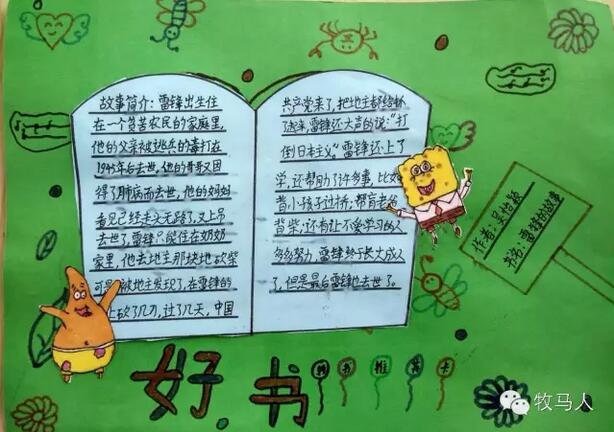 故事简介：雷锋出生住
在一个贫苦农民的家庭里，
他的父亲被逃兵的毒打在
1945年后去世，他的哥哥又因
得了肺病而去世，他的妈妈
看见已经走头无路了，又上吊
去世了，雷锋只能住在奶奶
家里，他去地主那块地砍柴
可是被地主发现了，在雷锋的
上砍了几刀，过了几天，中国
共产党来了，把地主都给抓
了起来，雷锋还大声的说："打
倒日本主义"雷锋还上了
学，还帮助了许多事，比如
背小孩子过桥，帮肯老爷
背柴，还有让不爱学习的人
多多努力，雷锋终于长大成人
了，但是最后雷锋也去世了。
作者：吴怡颖
书名：雷锋的故事
好书
好书推荐卡
牧马人